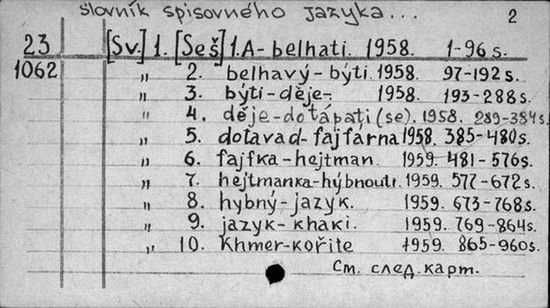 slovník spisovného jazyka... 2
23 [Sv.] 1. [Seš] 1. A-belhati. 1958. 1-96 s.
1062 „ 2. belhavý-býti. 1958. 97-192 s.
„ 3. býti-děje- 1958. 193-288s.
„ 4. děje-dotápati (se). 1958. 289-384s.
„ 5. dotavad-fajfárna 1958. 385-480s.
„ 6. fajfka-hejtman. 1959. 481-576s.
„ 7. hejtmanka-hýbnouti. 1959. 577-672s.
„ 8. hybný-jazyk. 1959. 673-768s.
„ 9. jazyk-khaki. 1959. 769-864s.
„ 10. Khmer-kořite 1959. 865-960s.
См. след. карт.